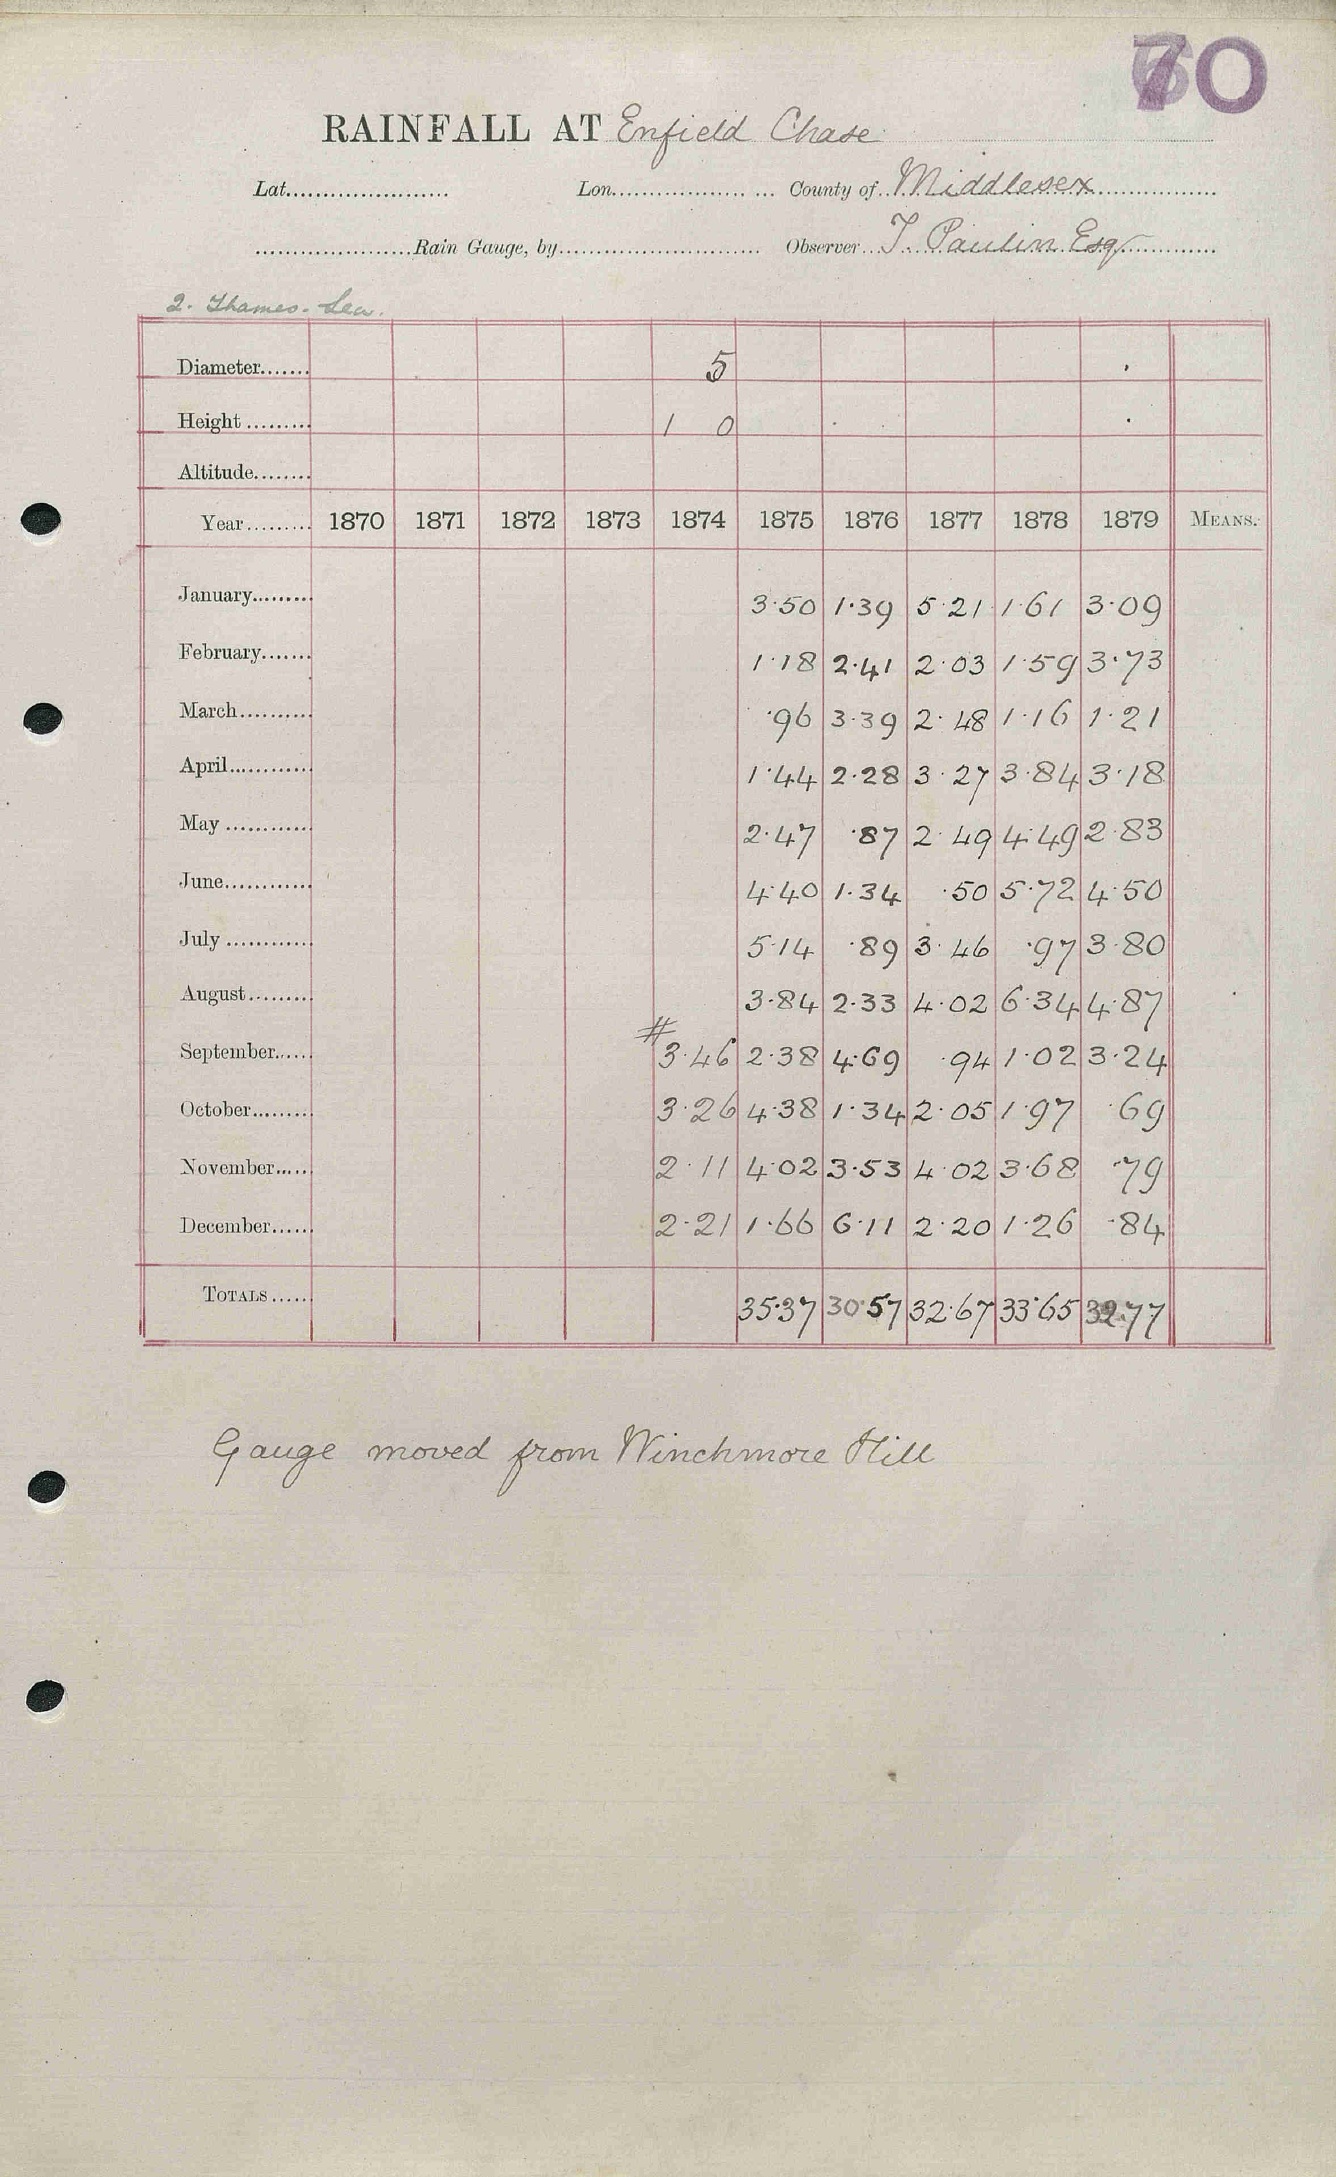 70
RAINFALL AT Enfield Chase
Lat. Lon. County of Middlesex
Rain Gauge, by Observer T Paulin Esqr
2. Thames-Lea.
Diameter 5
Height 1 0
Altitude
Year 1870 1871 1872 1873 1874 1875 1876 1877 1878 1879 MEANS.
January 3.50 1.39 5.21 1.61 3.09
February 1.18 2.41 2.03 1.59 3.73
March .96 3.39 2.48 1.16 1.21
April 1.44 2.28 3.27 3.84 3.18
May 2.47 .87 2.49 4.49 2.83
June 4.40 1.34 .50 5.72 4.50
July 5.14 .89 3.46 .97 3.80
August 3.84 2.33 4.02 6.34 4.87
September # 3.46 2.38 4.69 .94 1.02 3.24
October 3.26 4.38 1.34 2.05 1.97 .69
November 2.11 4.02 3.53 4.02 3.68 .79
December 2.21 1.66 6.11 2.20 1.26 .84
TOTALS 35.37 30.57 32.67 33.65 32.77
Gauge moved from Winchmore Hill